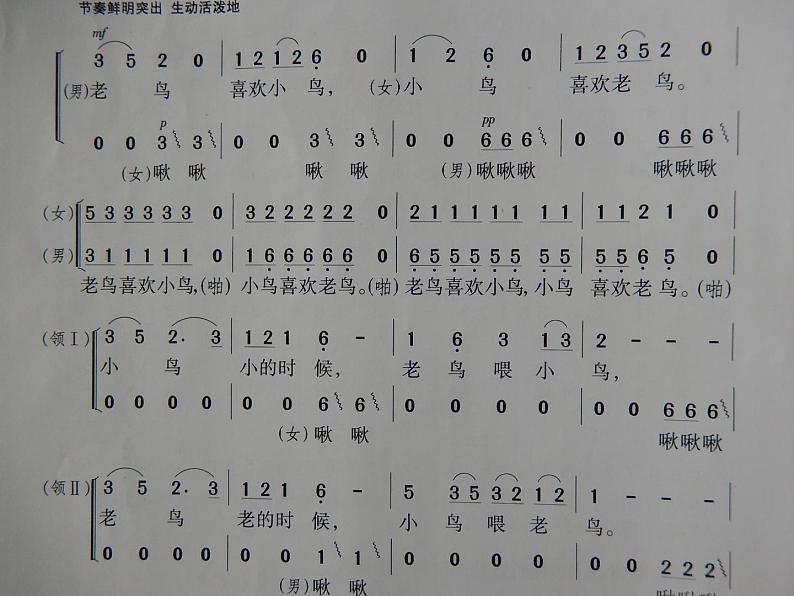 节奏鲜明突出 生动活泼地
mf
3 5 2 0 | 1 2 1 2 6 0 | 1 2 6 0 | 1 2 3 5 2 0
(男)老 鸟 喜欢小 鸟, (女)小 鸟 喜欢老 鸟。
p pp
0 0 3 3 | 0 0 3 3 | 0 0 6 6 6 | 0 0 6 6 6
(女)啾 啾 啾 啾 (男)啾啾啾 啾啾啾
(女) 5 3 3 3 3 3 0 | 3 2 2 2 2 2 0 | 2 1 1 1 1 1 1 1 | 1 1 2 1 0
(男) 3 1 1 1 1 1 0 | 1 6 6 6 6 6 0 | 6 5 5 5 5 5 5 5 | 5 5 6 5 0
老鸟喜欢小鸟,(啪) 小鸟喜欢老鸟。(啪) 老鸟喜欢小鸟, 小鸟 喜欢老 鸟。(啪)
(领Ⅰ) 3 5 2. 3 | 1 2 1 6 – | 1 6 3 1 3 | 2 – – –
小 鸟 小的时 候, 老 鸟 喂 小 鸟,
0 0 0 0 | 0 0 6 6 | 0 0 0 0 | 0 0 6 6 6
(女)啾 啾 啾啾啾
(领Ⅱ) 3 5 2. 3 | 1 2 1 6 – | 5 3 5 3 2 1 2 | 1 – – –
老 鸟 老的时 候, 小 鸟 喂 老 鸟。
0 0 0 0 | 0 0 1 1 | 0 0 0 0 | 0 0 2 2 2
(男)啾 啾 啾啾啾